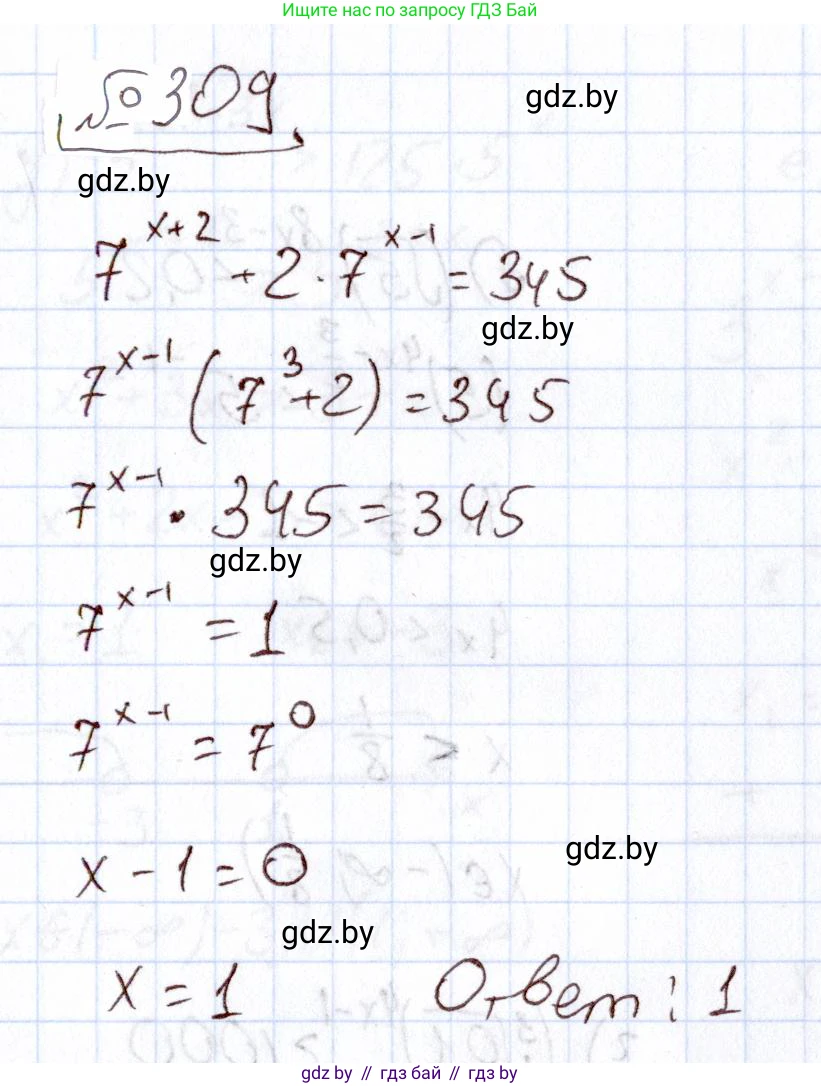 Ищите нас по запросу ГДЗ Бай
№309.
gdz.by
gdz.by
7^{x+2} + 2·7^{x-1} = 345
gdz.by
7^{x-1} (7^3+2) = 345
7^{x-1} · 345 = 345
gdz.by
7^{x-1} = 1
7^{x-1} = 7^0
gdz.by
x - 1 = 0
gdz.by
x = 1 Ответ: 1
gdz.by // гдз бай // гдз.бел